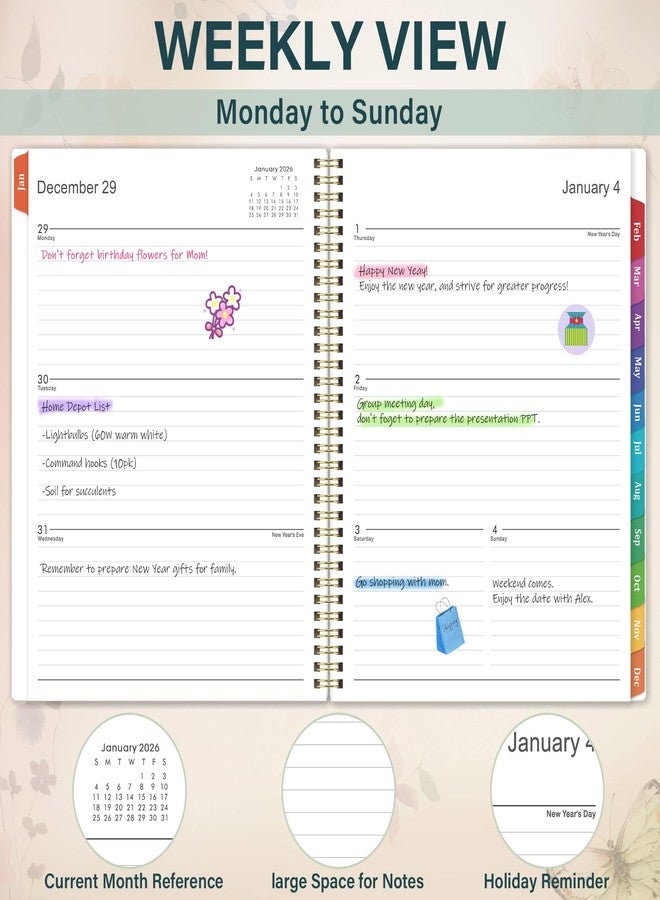 WEEKLY VIEW
Monday to Sunday
Jan
December 29
January 2026
S M T W T F S
1 2 3
4 5 6 7 8 9 10
11 12 13 14 15 16 17
18 19 20 21 22 23 24
25 26 27 28 29 30 31
29
Monday
Don't forget birthday flowers for Mom!
30
Tuesday
Home Depot List
-Lightbulbs (60W warm white)
-Command hooks (10pk)
-Soil for succulents
31
Wednesday
New Year's Eve
Remember to prepare New Year gifts for family.
January 4
1
Thursday
New Year's Day
Happy New Yeay!
Enjoy the new year, and strive for greater progress!
2
Friday
Group meeting day,
don't foget to prepare the presentation PPT.
3
Saturday
Go shopping with mom.
4
Sunday
Weekend comes.
Enjoy the date with Alex.
Feb
Mar
Apr
May
Jun
Jul
Aug
Sep
Oct
Nov
Dec
January 2026
S M T W T F S
1 2 3
4 5 6 7 8 9 10
11 12 13 14 15 16 17
18 19 20 21 22 23 24
25 26 27 28 29 30 31
January 4
New Year's Day
Current Month Reference
large Space for Notes
Holiday Reminder